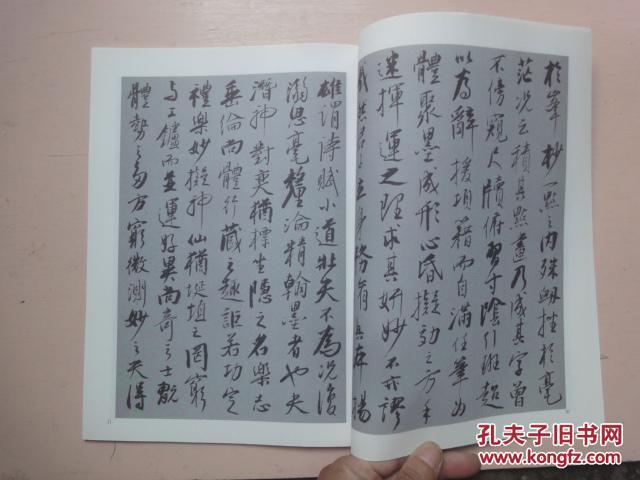 於峯杪一點之內殊衄挫於毫
茫況云積其點畫乃成其字曾
不傍窺尺牘俯習寸陰引班超
以為辭援項籍而自滿任筆為
體聚墨成形心昏擬効之方手
迷揮運之理求其妍妙不亦謬
哉然君子立身務脩其本揚
雄謂詩賦小道壯夫不為況復
溺思毫釐淪精翰墨者也夫
潛神對奕猶標坐隱之名樂志
垂綸尚體行藏之趣詎若功宣
禮樂妙擬神仙猶埏埴之罔窮
与工鑪而並運好異尚奇之士翫
體勢之多方窮微測妙之夫得
11
孔夫子旧书网
www.kongfz.com